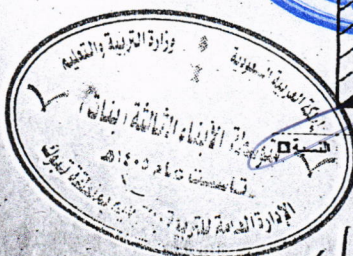 المملكة العربية السعودية
وزارة التربية والتعليم
الأبناء الثالثة (بنات)
تأسست عام ١٤٠٥هـ
الإدارة العامة للتربية بمنطقة تبوك
النسبة